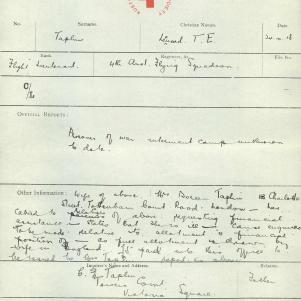 No.
Surname.
Christian Names.
Date.
Taplin
T. E.
Rank.
Regiment, &c.
File No.
Flight Lieutenant
4th Aust. Flying Squadron
OFFICIAL REPORTS:
Prisoner of war internment camp unknown
to date.
Other Information: Wife of above: Mrs Doreen Taplin 18 Charlotte
Street, Tottenham Court Road. London. has
cabled to of above requesting financial
assistance & states that she is ill. Cause enquiries
to be made relative to allotment & financial
position of do full allotment is drawn by
wife in England is paid into this office to
be issued to
Inquirer's Name and Address.
Relation.
Taplin
Father
Court
Victoria Square